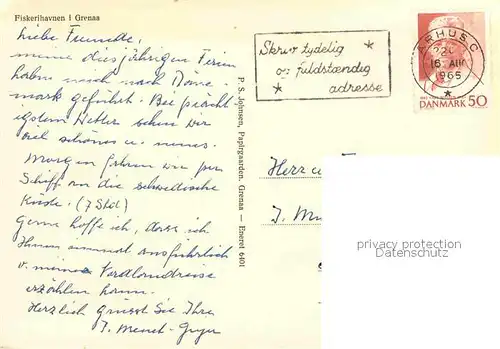 Fiskerihavnen i Grenaa
Liebe Freunde,
meine diesjährigen Ferien
haben mich nach Däne-
mark geführt. Bei prächt-
igstem Wetter sehen wir
viel schönes u. neues.
Morgen fahren wir per
Schiff an die schwedische
Küste. (7 Std)
Gerne hoffe ich, dass ich
Ihnen einmal ausführlich
v. meiner Nordlandreise
erzählen kann.
Herzlich grüsst Sie Ihre
P. S. Johnsen, Papirgaarden, Grenaa — Eneret 6401
Skriv tydelig
og fuldstændig
adresse
ÅRHUS C
16. AUG
1965
DANMARK 50
Herr u.
privacy protection
Datenschutz